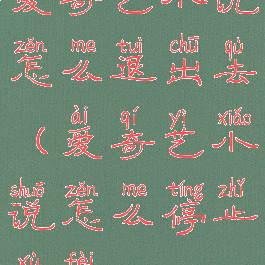 爱奇艺小说
zěn me tuì chū qù
怎么退出去
ài qí yì xiǎo
（爱奇艺小
shuō zěn me tíng zhǐ
说怎么停止
xù fèi